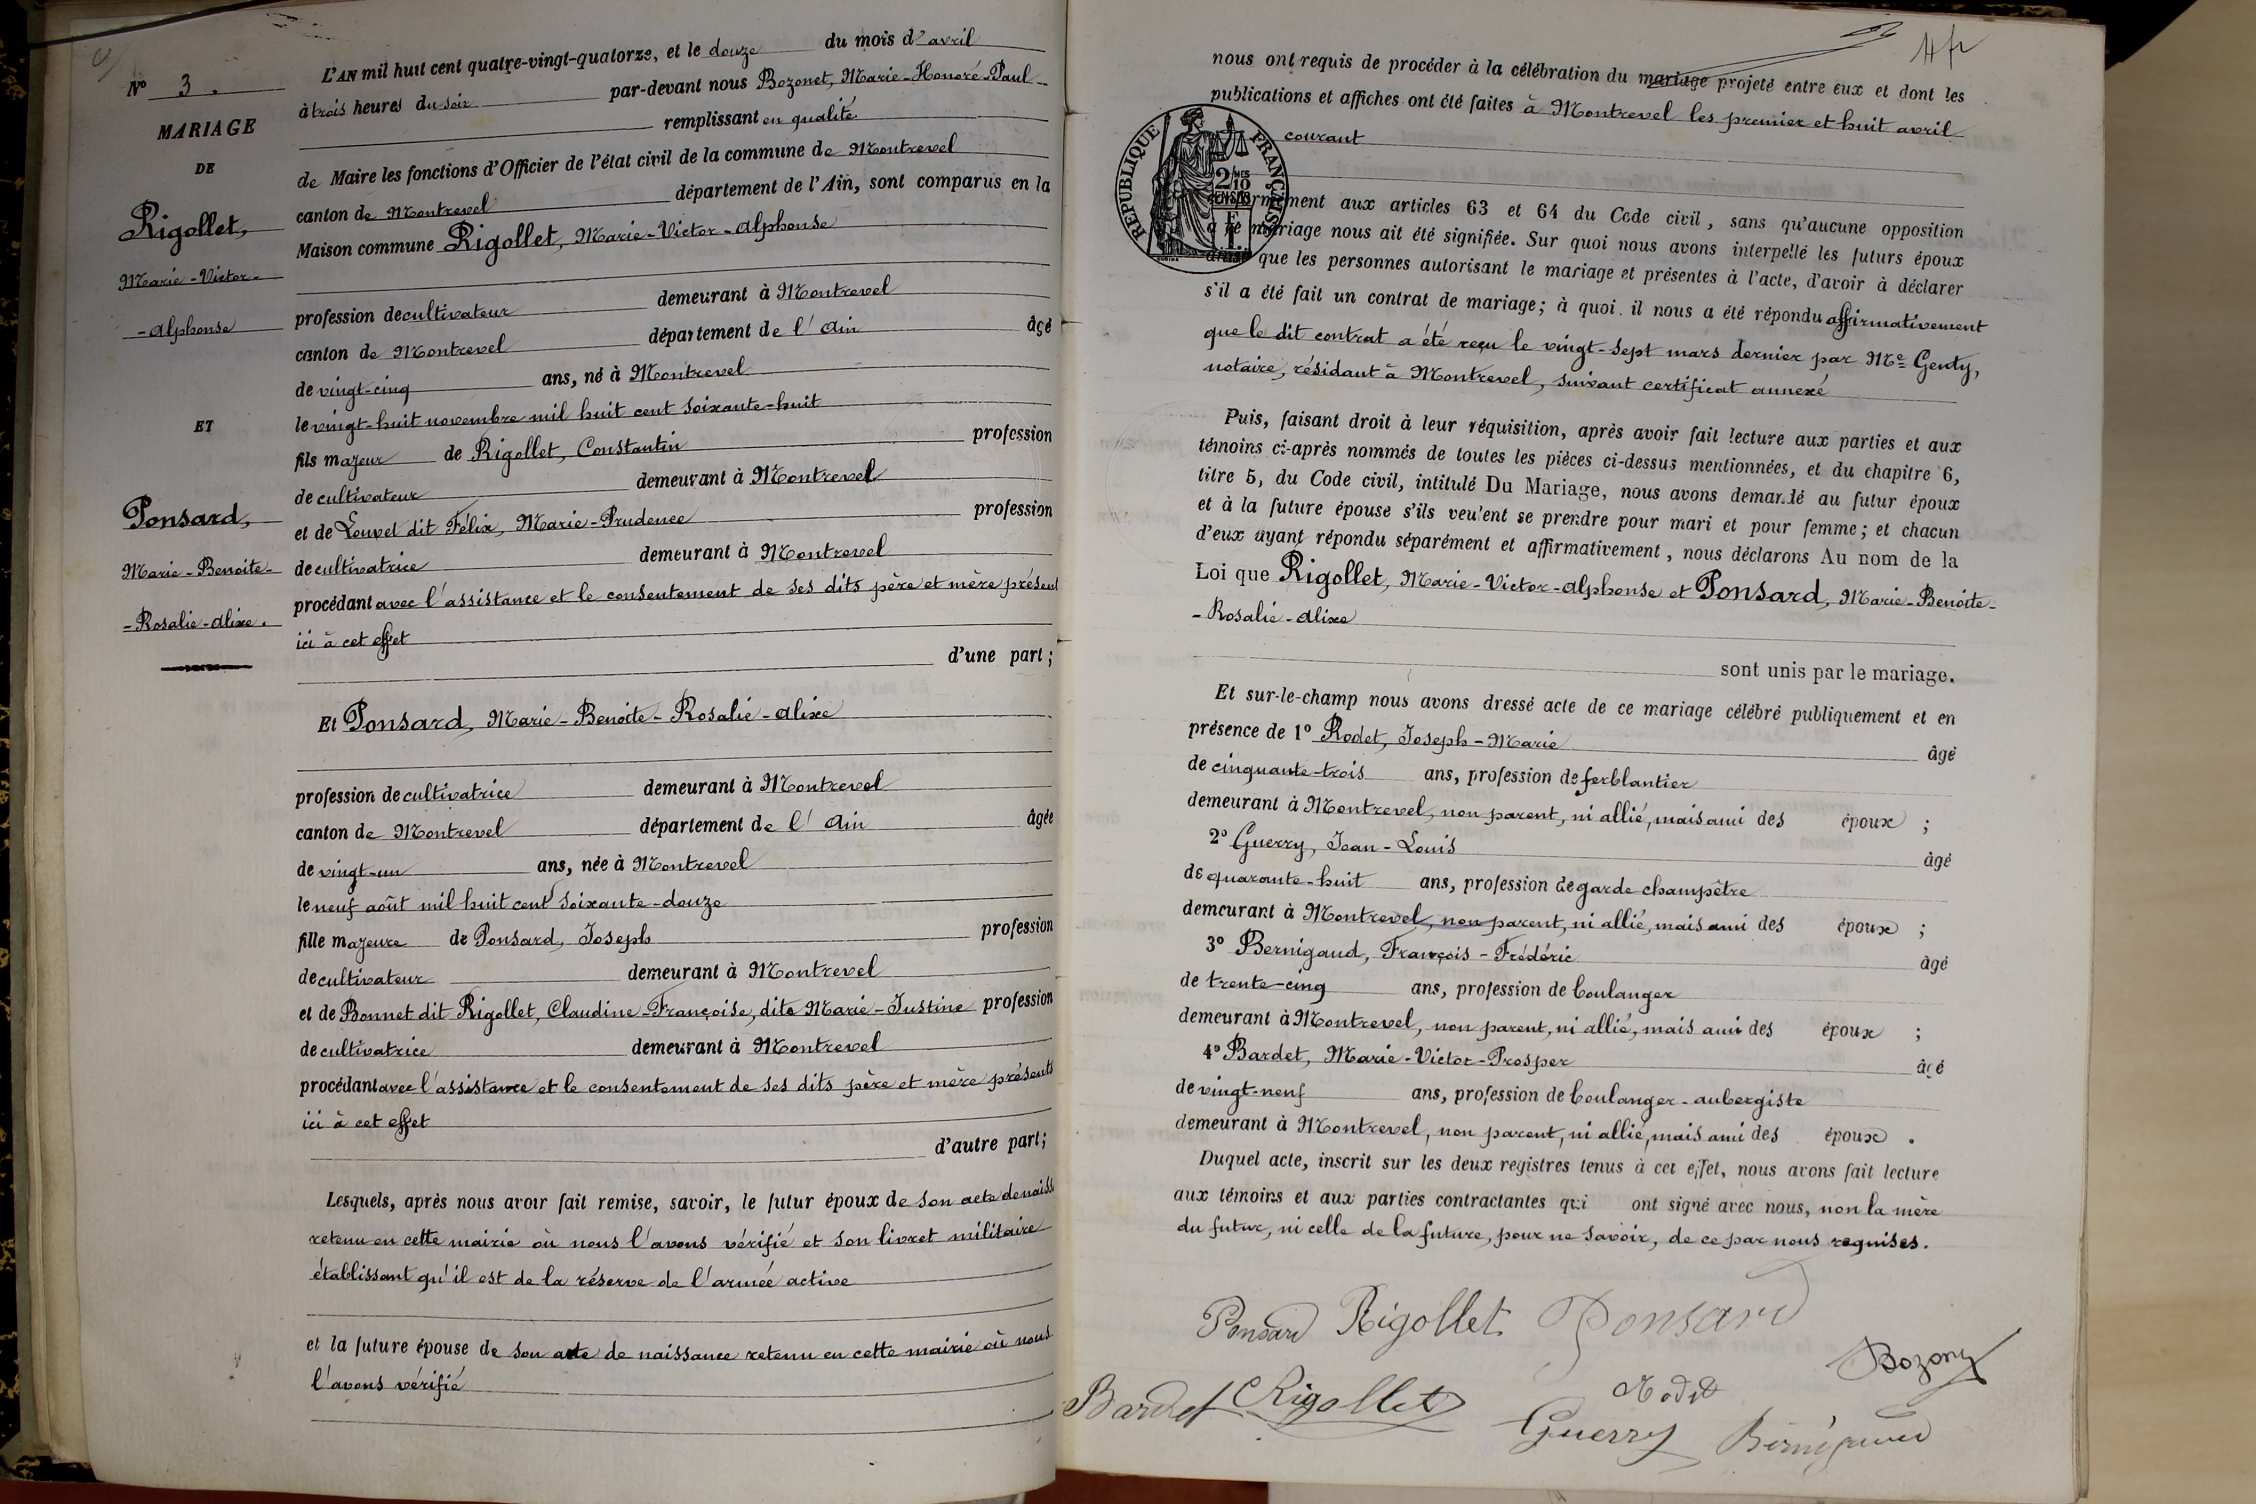 N° 3.
MARIAGE
DE
Rigollet,
Marie-Victor-
-Alphonse
ET
Ponsard,
Marie-Benoite-
-Rosalie-Alixe.
L'AN mil huit cent quatre-vingt-quatorze, et le douze du mois d'avril
à trois heures du soir par-devant nous Bozonet, Marie-Honoré-Paul
remplissant en qualité
de Maire les fonctions d'Officier de l'état civil de la commune de Montrevel
canton de Montrevel département de l'Ain, sont comparus en la
Maison commune Rigollet, Marie-Victor-Alphonse
profession de cultivateur demeurant à Montrevel
canton de Montrevel département de l'Ain âgé
de vingt-cinq ans, né à Montrevel
le vingt-huit novembre mil huit cent soixante-huit
fils majeur de Rigollet, Constantin profession
de cultivateur demeurant à Montrevel
et de Louvet dit Félix, Marie-Prudence profession
de cultivatrice demeurant à Montrevel
procédant avec l'assistance et le consentement de ses dits père et mère présent
ici à cet effet
d'une part;
Et Ponsard, Marie-Benoite-Rosalie-Alixe
profession de cultivatrice demeurant à Montrevel
canton de Montrevel département de l'Ain âgée
de vingt-un ans, née à Montrevel
le neuf août mil huit cent soixante-douze
fille majeure de Ponsard, Joseph profession
de cultivateur demeurant à Montrevel
et de Bonnet dit Rigollet, Claudine-Françoise, dite Marie-Justine profession
de cultivatrice demeurant à Montrevel
procédant avec l'assistance et le consentement de ses dits père et mère présents
ici à cet effet
d'autre part;
Lesquels, après nous avoir fait remise, savoir, le futur époux de son acte de naiss
retenu en cette mairie où nous l'avons vérifié et son livret militaire
établissant qu'il est de la réserve de l'armée active
et la future épouse de son acte de naissance retenu en cette mairie où nous
l'avons vérifié
nous ont requis de procéder à la célébration du mariage projeté entre eux et dont les
publications et affiches ont été faites à Montrevel les premier et huit avril
courant
RÉPUBLIQUE FRANÇAISE
2/10
conformément aux articles 63 et 64 du Code civil, sans qu'aucune opposition
à ce mariage nous ait été signifiée. Sur quoi nous avons interpellé les futurs époux
ainsi que les personnes autorisant le mariage et présentes à l'acte, d'avoir à déclarer
s'il a été fait un contrat de mariage; à quoi il nous a été répondu affirmativement
que le dit contrat a été reçu le vingt-sept mars dernier par Me Genty,
notaire, résidant à Montrevel, suivant certificat annexé
Puis, faisant droit à leur réquisition, après avoir fait lecture aux parties et aux
témoins ci-après nommés de toutes les pièces ci-dessus mentionnées, et du chapitre 6,
titre 5, du Code civil, intitulé Du Mariage, nous avons demandé au futur époux
et à la future épouse s'ils veulent se prendre pour mari et pour femme; et chacun
d'eux ayant répondu séparément et affirmativement, nous déclarons Au nom de la
Loi que Rigollet, Marie-Victor-Alphonse et Ponsard, Marie-Benoite-
-Rosalie-Alixe
sont unis par le mariage.
Et sur-le-champ nous avons dressé acte de ce mariage célébré publiquement et en
présence de 1° Rodet, Joseph-Marie âgé
de cinquante-trois ans, profession de ferblantier
demeurant à Montrevel, non parent, ni allié, mais ami des époux ;
2° Guerry, Jean-Louis âgé
de quarante-huit ans, profession de garde champêtre
demeurant à Montrevel, non parent, ni allié, mais ami des époux ;
3° Bernigaud, François-Frédéric âgé
de trente-cinq ans, profession de boulanger
demeurant à Montrevel, non parent, ni allié, mais ami des époux ;
4° Bardet, Marie-Victor-Prosper âgé
de vingt-neuf ans, profession de boulanger-aubergiste
demeurant à Montrevel, non parent, ni allié, mais ami des époux .
Duquel acte, inscrit sur les deux registres tenus à cet effet, nous avons fait lecture
aux témoins et aux parties contractantes qui ont signé avec nous, non la mère
du futur, ni celle de la future, pour ne savoir, de ce par nous requises.
Ponsard Rigollet Ponsard
Bozony
Bardet Rigollet Rodet
Guerry Bernigaud